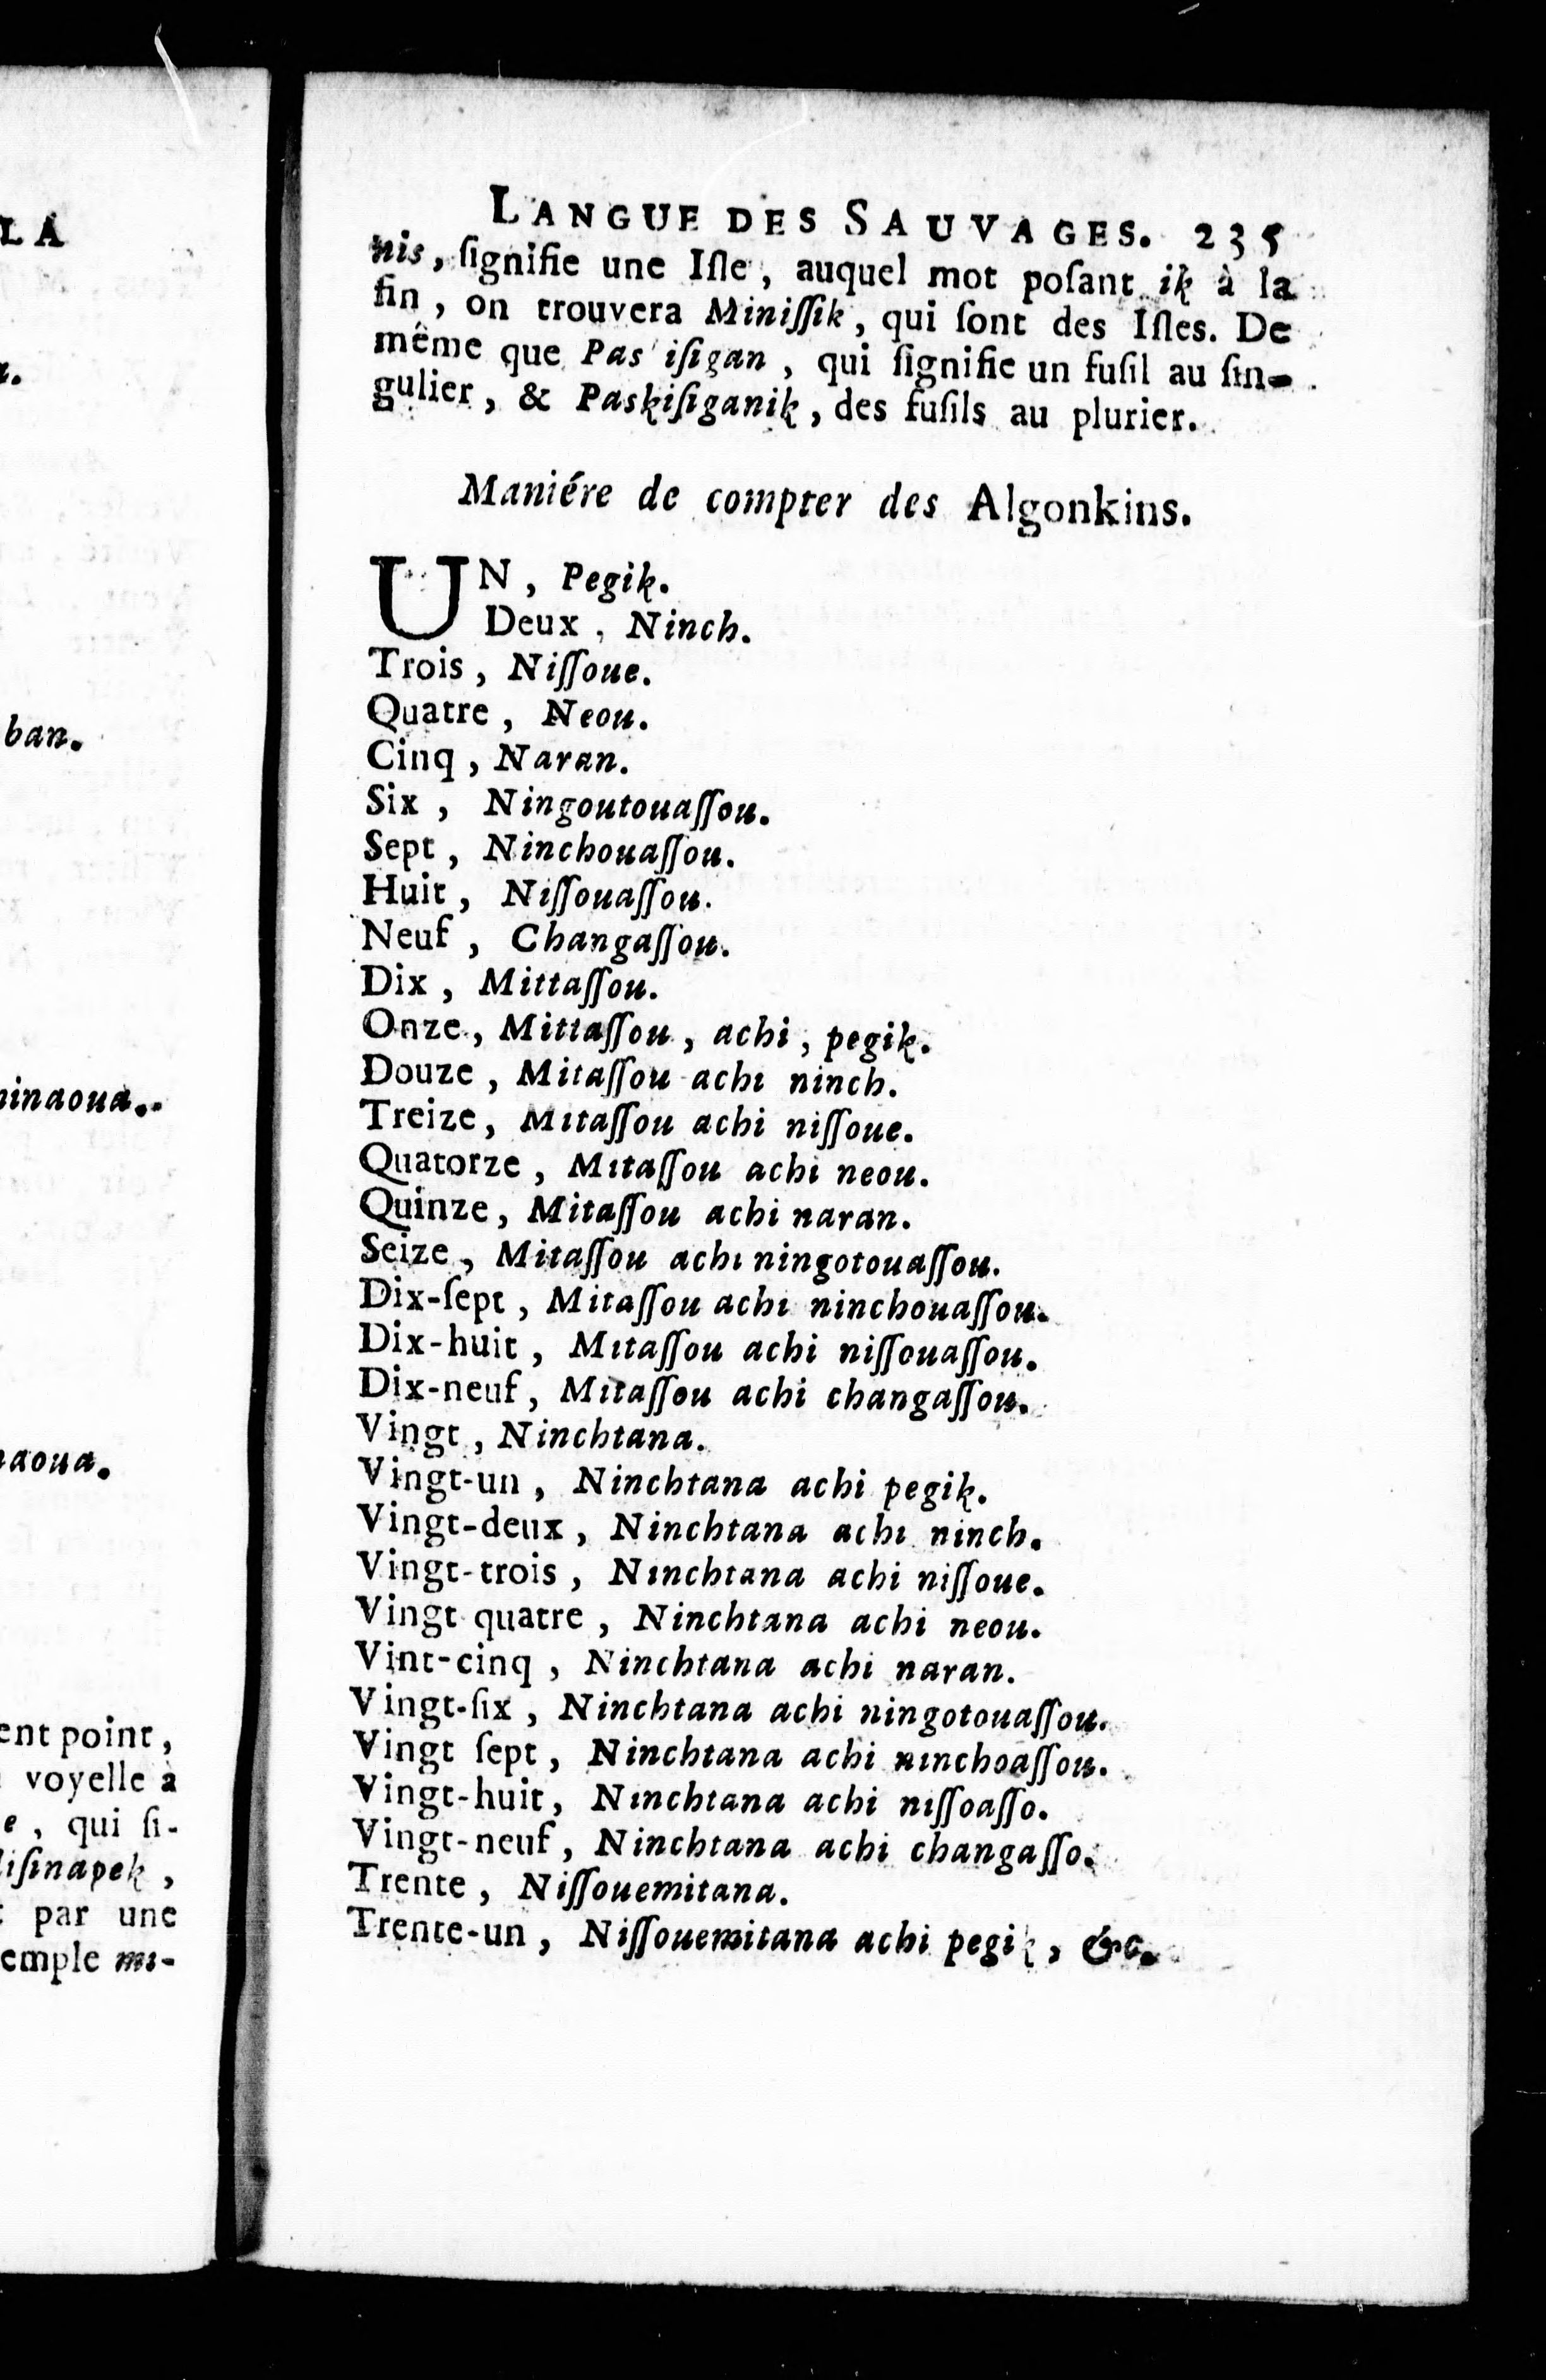 LA
.
ban.
ninaoua.
naoua.
ent point,
voyelle à
e, qui ſi-
iſinapek,
par une
emple mi-
LANGUE DES SAUVAGES. 235
nis, ſignifie une Iſle, auquel mot poſant ik à la
fin, on trouvera Miniſſik, qui ſont des Iſles. De
même que Pas iſigan, qui ſignifie un fuſil au ſin-
gulier, & Paskiſiganik, des fuſils au plurier.
Maniére de compter des Algonkins.
UN, Pegik.
Deux, Ninch.
Trois, Niſſoue.
Quatre, Neou.
Cinq, Naran.
Six, Ningoutouaſſou.
Sept, Ninchouaſſou.
Huit, Niſſouaſſou.
Neuf, Changaſſou.
Dix, Mittaſſou.
Onze, Mittaſſou, achi, pegik.
Douze, Mitaſſou achi ninch.
Treize, Mitaſſou achi niſſoue.
Quatorze, Mitaſſou achi neou.
Quinze, Mitaſſou achi naran.
Seize, Mitaſſou achi ningotouaſſou.
Dix-ſept, Mitaſſou achi ninchouaſſou.
Dix-huit, Mitaſſou achi niſſouaſſou.
Dix-neuf, Mitaſſou achi changaſſou.
Vingt, Ninchtana.
Vingt-un, Ninchtana achi pegik.
Vingt-deux, Ninchtana achi ninch.
Vingt-trois, Ninchtana achi niſſoue.
Vingt quatre, Ninchtana achi neou.
Vint-cinq, Ninchtana achi naran.
Vingt-ſix, Ninchtana achi ningotouaſſou.
Vingt ſept, Ninchtana achi ninchoaſſou.
Vingt-huit, Ninchtana achi niſſoaſſo.
Vingt-neuf, Ninchtana achi changaſſo.
Trente, Niſſouemitana.
Trente-un, Niſſouemitana achi pegik, &c.